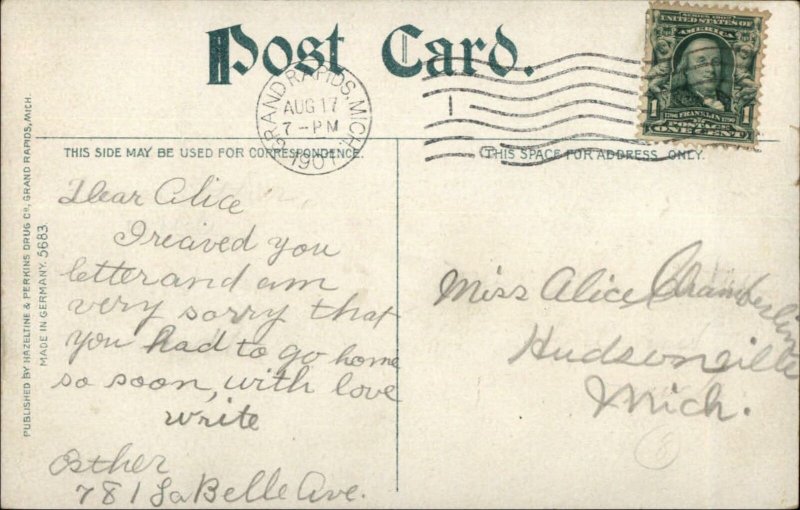 Post Card.
SERIES 1902
UNITED STATES OF
AMERICA
1706 FRANKLIN 1790
POSTAGE
1 ONE CENT 1
GRAND RAPIDS, MICH.
AUG 17
7 - PM
1907
1
THIS SIDE MAY BE USED FOR CORRESPONDENCE.
THIS SPACE FOR ADDRESS ONLY.
PUBLISHED BY HAZELTINE & PERKINS DRUG Co, GRAND RAPIDS, MICH.
MADE IN GERMANY. 5683.
Dear Alice
I reaved you
letter and am
very sorry that
you had to go home
so soon, with love
write
Esther
781 LaBelle Ave.
Miss Alice Chamberlin
Hudsoneille
Mich.